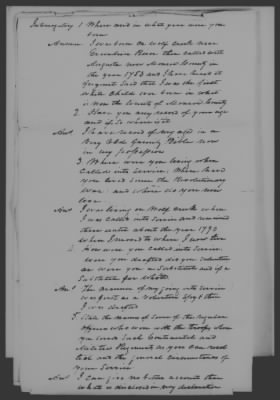 Interrogatory 1 Where and in what year were you
born
Answer I was born on Wolf Creek near
Greenbrier River then called west
Augusta now Monroe County in
the year 1753 and I have heard it
frequent Said that I was the first
White Child ever born in what
is now the County of Monroe County
2. Have you any record of your age
and if so where is it
Ans I have record of my age in a
Very Old family Bible now
in my possession
3. Where were you living when
Called into Service. Where have
you lived since the Revolutionary
War. and where do you now
live
Ans I was living on Wolf Creek when
I was called into Service and remained
there until about the year 1790
when I moved to where I now live
4. How were you called into Service
were you drafted did you volunteer
or were you a Substitute and if a
Substitute for Whom
Ans The manner of my going into Service
was first as a Volunteer
I was drafted
5. State the names of Some of the regular
Officers who were with the troops when
you served Such Continental and
Militia Regiments as you can recol
lect and the general circumstances of
your Service
Ans I can give no other account than
what is disclosed in my declaration